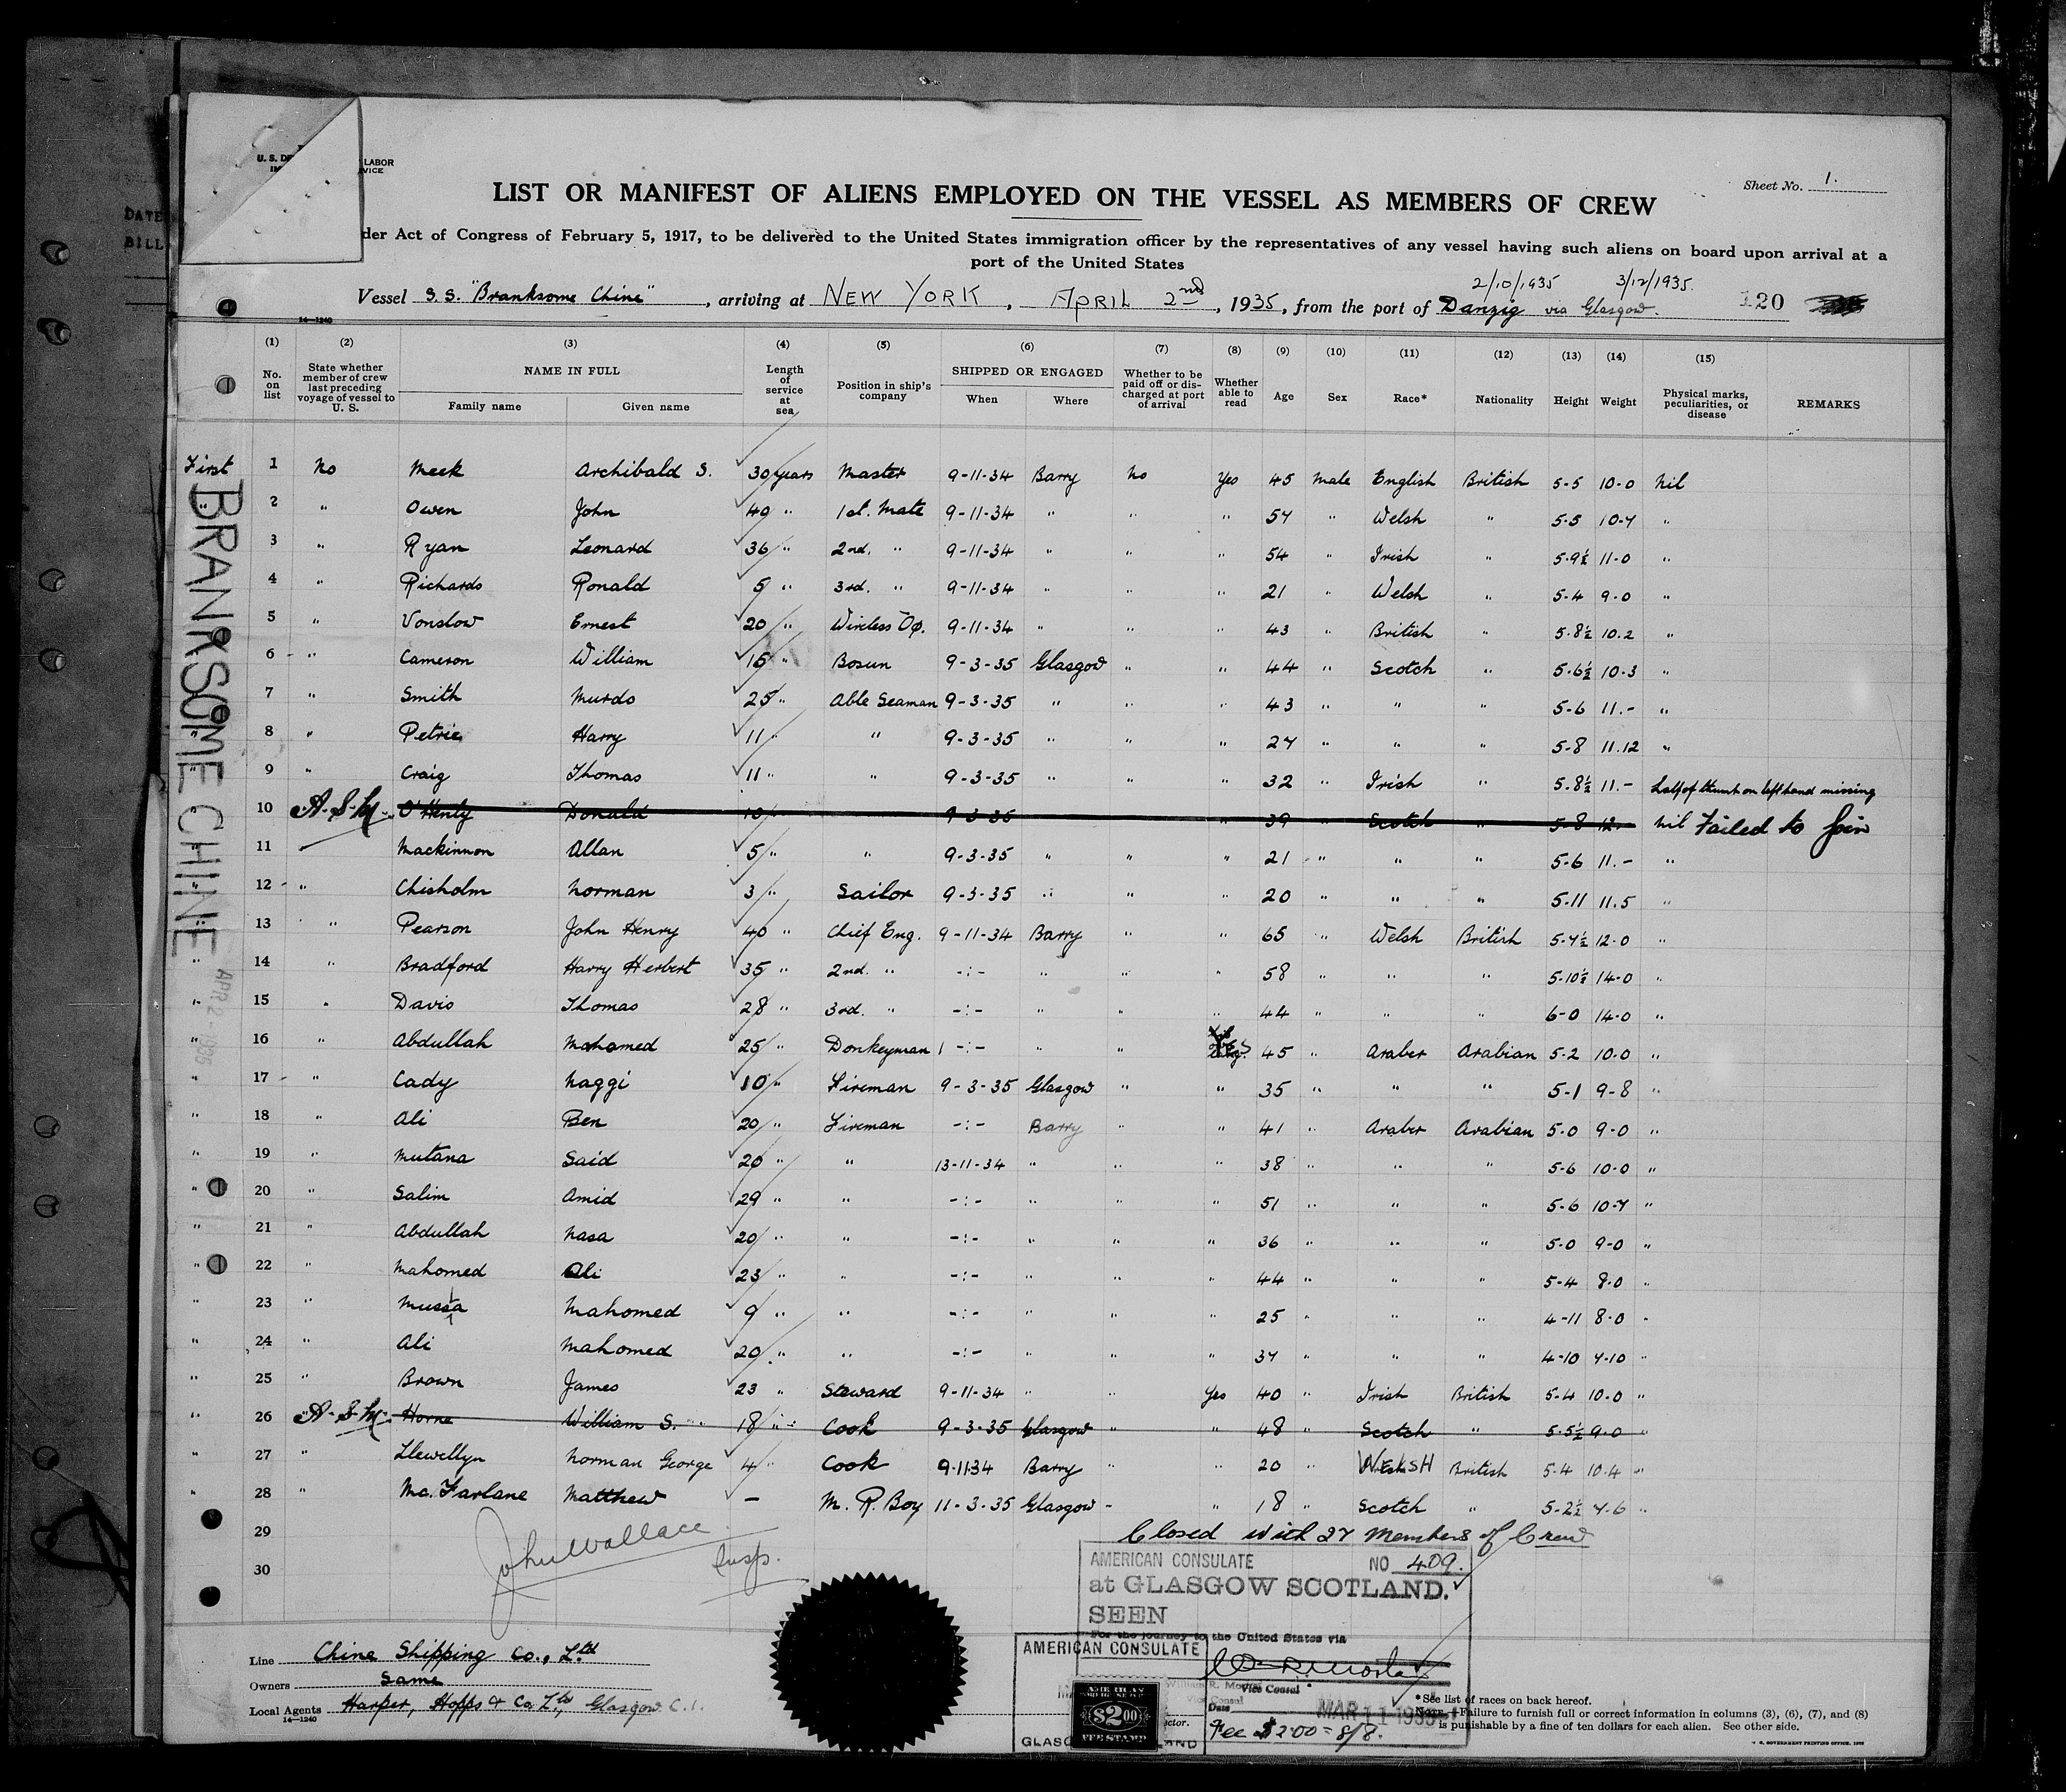 DATE
BILL
U. S. DE LABOR
VICE
Sheet No. 1.
LIST OR MANIFEST OF ALIENS EMPLOYED ON THE VESSEL AS MEMBERS OF CREW
der Act of Congress of February 5, 1917, to be delivered to the United States immigration officer by the representatives of any vessel having such aliens on board upon arrival at a
port of the United States
2/10/1935 3/12/1935.
Vessel S.S. "Branksome Chine", arriving at NEW YORK, APRIL 2nd, 1935, from the port of Danzig via Glasgow. 120
14—1240
(1) (2) (3) (4) (5) (6) (7) (8) (9) (10) (11) (12) (13) (14) (15)
No. on list State whether member of crew last preceding voyage of vessel to U. S. NAME IN FULL Family name Given name Length of service at sea Position in ship's company SHIPPED OR ENGAGED When Where Whether to be paid off or discharged at port of arrival Whether able to read Age Sex Race* Nationality Height Weight Physical marks, peculiarities, or disease REMARKS
First 1 No Meek Archibald S. 30 years Master 9-11-34 Barry No Yes 45 Male English British 5-5 10-0 Nil
2 " Owen John 40 " 1st. Mate 9-11-34 " " " 57 " Welsh " 5-5 10-7 "
3 " Ryan Leonard 36 " 2nd. " 9-11-34 " " " 54 " Irish " 5-9½ 11-0 "
4 " Richards Ronald 5 " 3rd. " 9-11-34 " " " 21 " Welsh " 5-4 9-0 "
5 " Vonslow Ernest 20 " Wireless Op. 9-11-34 " " " 43 " British " 5-8½ 10.2 "
6 " Cameron William 15 " Bosun 9-3-35 Glasgow " " 44 " Scotch " 5-6½ 10-3 "
7 " Smith Murdo 25 " Able Seaman 9-3-35 " " " 43 " " " 5-6 11.- "
8 " Petrie Harry 11 " " 9-3-35 " " " 27 " " " 5-8 11.12 "
9 " Craig Thomas 11 " " 9-3-35 " " " 32 " Irish " 5-8½ 11.- half of thumb on left hand missing
10 A.S.M. O'Henly Donald 10 9-3-35 " 39 " Scotch " 5-8 12- Nil Failed to Join
11 Mackinnon Allan 5 " " 9-3-35 " " " 21 " " " 5-6 11.- "
12 " Chisholm Norman 3 " Sailor 9-3-35 " " " 20 " " " 5-11 11.5 "
13 " Pearson John Henry 40 " Chief Eng. 9-11-34 Barry " " 65 " Welsh British 5-7½ 12-0 "
14 " Bradford Harry Herbert 35 " 2nd. " -:- " " " 58 " " " 5-10½ 14-0 "
15 " Davis Thomas 28 " 3rd. " -:- " " " 44 " " " 6-0 14-0 "
16 " Abdullah Mohomed 25 " Donkeyman -:- " " Yes 45 " Araber Arabian 5-2 10-0 "
17 " Cady Naggi 10 " Fireman 9-3-35 Glasgow " " 35 " " " 5-1 9-8 "
18 " Ali Ben 20 " Fireman -:- Barry " " 41 " Araber Arabian 5-0 9-0 "
19 " Mutana Said 20 " " 13-11-34 " " " 38 " " " 5-6 10-0 "
20 " Salim Amid 29 " " -:- " " " 51 " " " 5-6 10-7 "
21 " Abdullah Nasa 20 " " -:- " " " 36 " " " 5-0 9-0 "
22 " Mahomed Ali 23 " " -:- " " " 44 " " " 5-4 8-0 "
23 " Mussa Mahomed 9 " " -:- " " " 25 " " " 4-11 8-0 "
24 " Ali Mahomed 20 " " -:- " " " 37 " " " 4-10 7-10 "
25 " Brown James 23 " Steward 9-11-34 " " Yes 40 " Irish British 5-4 10-0 "
26 A.S.M. Horne William S. 18 " Cook 9-3-35 Glasgow " " 48 " Scotch " 5-5½ 9-0 "
27 " Llewellyn Norman George 4 " Cook 9-11-34 Barry " " 20 " WELSH British 5-4 10-4 "
28 " Mc. Farlane Matthew - M. R. Boy 11-3-35 Glasgow - " 18 " Scotch " 5-2½ 7-6 "
29
Closed with 27 Members of Crew
30
John Wallace
Insp.
BRANKSOME CHINE
APR 2 - 1935
AMERICAN CONSULATE NO 409.
at GLASGOW SCOTLAND.
SEEN
For the journey to the United States via
AMERICAN CONSULATE
Vice Consul
Date MAR 11 1935
Fee $2.00 = 8/8.
AMERICAN
$2.00
FEE STAMP
Line Chine Shipping Co., Ltd
Owners Same
Local Agents Harper, Hopps & Co. Ltd., Glasgow C.1.
14—1240
*See list of races on back hereof.
NOTE.—Failure to furnish full or correct information in columns (3), (6), (7), and (8)
is punishable by a fine of ten dollars for each alien. See other side.
U. S. GOVERNMENT PRINTING OFFICE